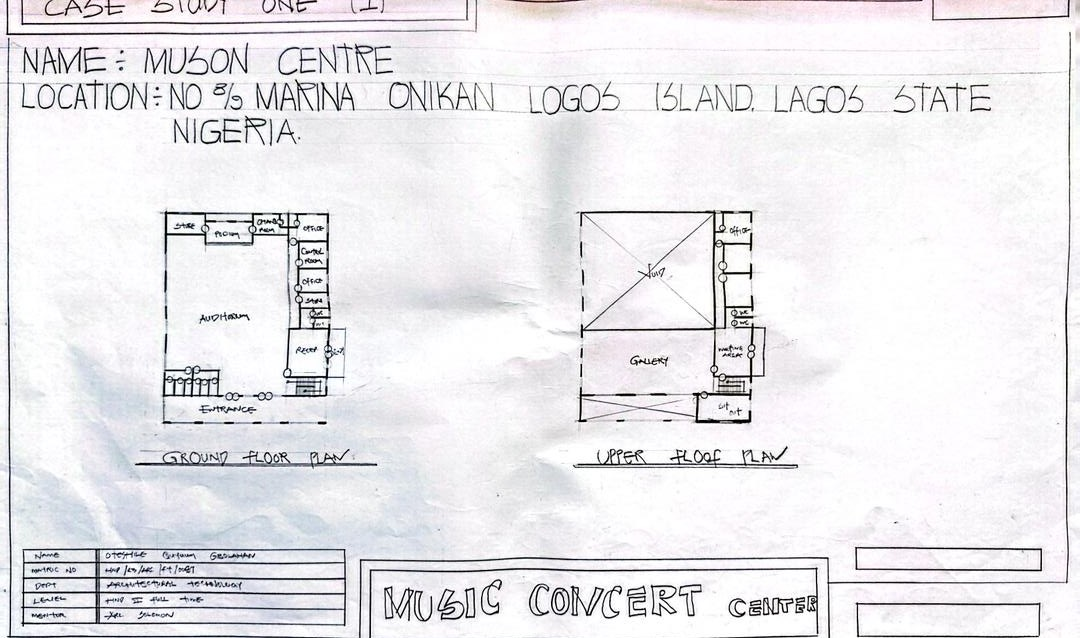 CASE STUDY ONE (1)
NAME: MUSON CENTRE
LOCATION: NO 8/9 MARINA ONIKAN LOGOS ISLAND, LAGOS STATE
NIGERIA.
STORE
PODIUM
ROOM
OFFICE
CONTROL
ROOM
OFFICE
STORE
WC
AUDITORIUM
RECEP
ENTRANCE
GROUND FLOOR PLAN
OFFICE
VOID
WC
WC
WAITING
AREA
GALLERY
SIT
OUT
UPPER FLOOR PLAN
NAME
MATRIC NO
DEPT ARCHITECTURAL TECHNOLOGY
LEVEL HND II FULL TIME
MENTOR SOLOMON
MUSIC CONCERT CENTER